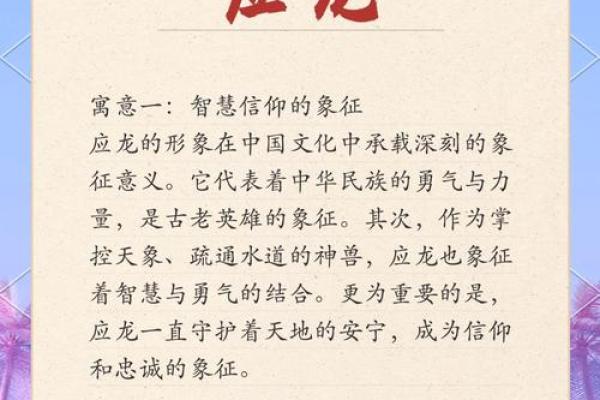 应龙
寓意一：智慧信仰的象征
应龙的形象在中国文化中承载深刻的象
征意义。它代表着中华民族的勇气与力
量，是古老英雄的象征。其次，作为掌
控天象、疏通水道的神兽，应龙也象征
着智慧与勇气的结合。更为重要的是，
应龙一直守护着天地的安宁，成为信仰
和忠诚的象征。